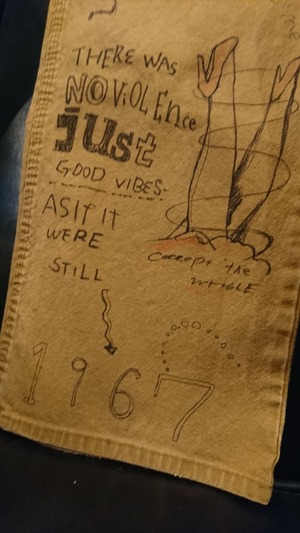 THERE WAS
NO ViOLEnce
JUst
GOOD VIBES-
AS IF IT
WERE
STILL
1967
the